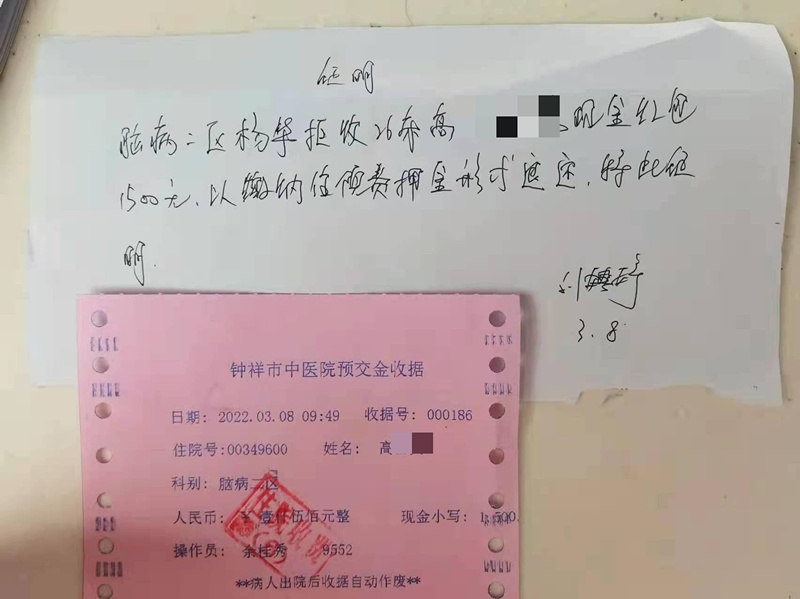 证明
脑病二区杨华拒收26床高 现金红包
1500元,以缴纳住院费押金形式退还,特此证
明.
3.8
钟祥市中医院预交金收据
日期: 2022.03.08 09:49 收据号: 000186
住院号:00349600 姓名: 高
科别: 脑病二区
人民币: 壹仟伍佰元整 现金小写: 1,500.
操作员: 余桂秀 9552
**病人出院后收据自动作废**